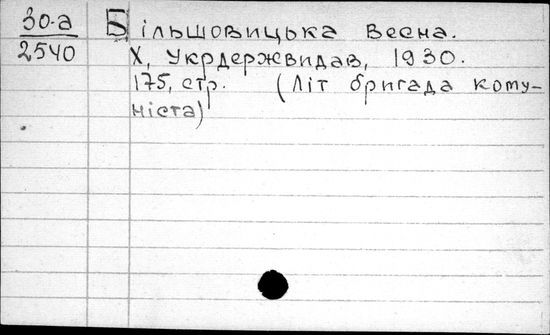 30-а
2540
Більшовицька весна.
Х, Укрдержвидав, 1930.
175, стр. (Літ бригада кому-
ніста)